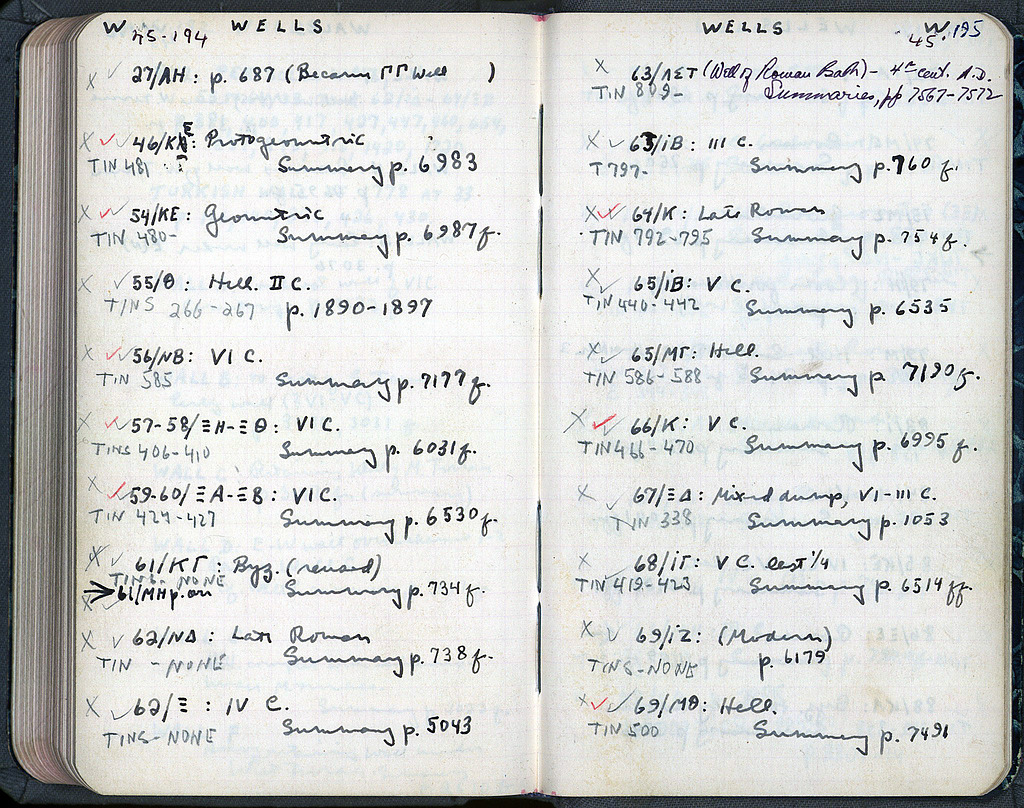 W 45-194 WELLS
27/ΛΗ: p. 687 (Became ΓΓ Well )
46/ΚΛ: Protogeometric
TIN 481 Summary p. 6983
54/ΚΕ: Geometric
TIN 480- Summary p. 6987 f.
55/Θ: Hell. II C.
TINS 266-267 p. 1890-1897
56/ΝΒ: VI C.
TIN 585 Summary p. 7177 f.
57-58/ΞΗ-ΞΘ: VI C.
TINS 406-410 Summary p. 6031 f.
59-60/ΞΑ-ΞΒ: VI C.
TIN 424-427 Summary p. 6530 f.
61/ΚΓ: Byz. (reused)
TINS- NONE Summary p. 734 f.
61/ΜΗ p.
62/ΝΔ: Late Roman
TIN - NONE Summary p. 738 f.
62/Ξ: IV C.
TINS-NONE Summary p. 5043
WELLS W 45-195
63/ΛΣΤ (Well of Roman Bath) - 4th cent. A.D.
TIN 809- Summaries, pp 7567-7572
63/ΙΒ: III C.
T797- Summary p. 760 f.
64/Κ: Late Roman
TIN 792-795 Summary p. 754 f.
65/ΙΒ: V C.
TIN 440-442 Summary p. 6535
65/ΜΓ: Hell.
TIN 586-588 Summary p. 7190 f.
66/Κ: V C.
TIN 466-470 Summary p. 6995 f.
67/ΞΔ: Mixed dump, VI-III C.
TIN 338 Summary p. 1053
68/ΙΓ: V C. last 1/4
TIN 419-423 Summary p. 6514 ff.
69/ΙΖ: (Modern)
TINS-NONE p. 6179
69/ΜΘ: Hell.
TIN 500 Summary p. 7491